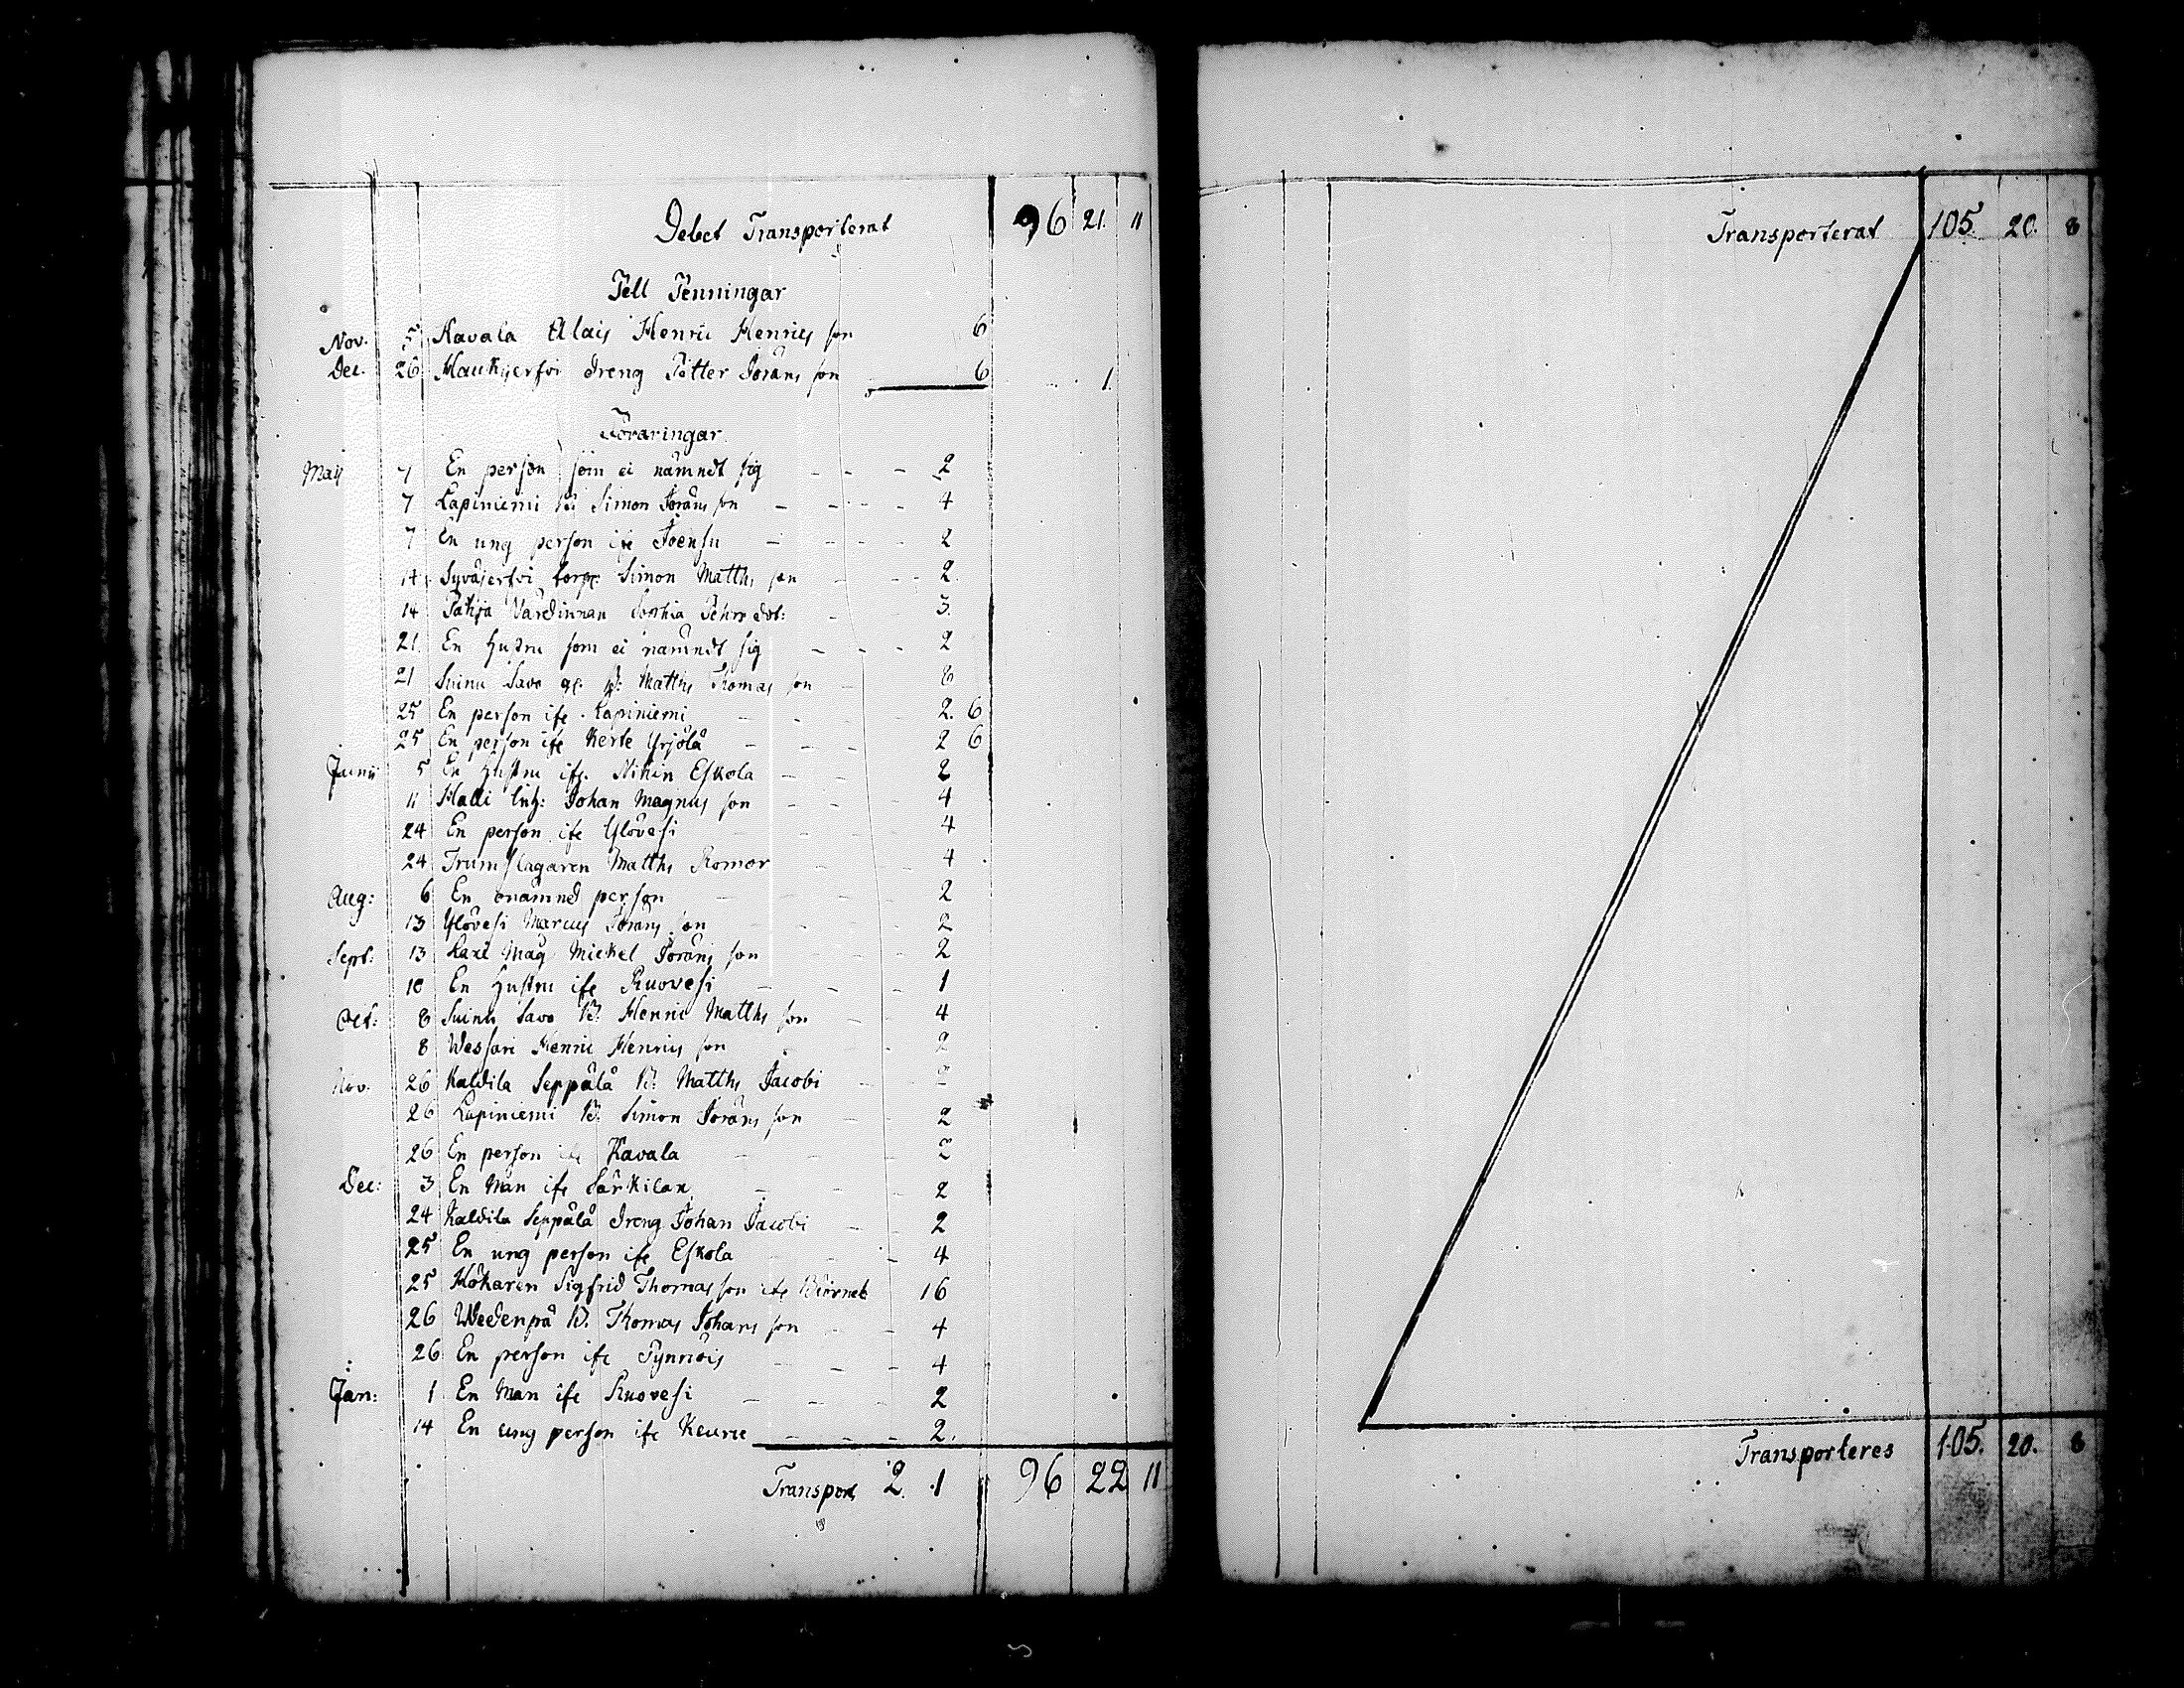 Debet Transporterat 96 21. 11
Tell Penningar
Nov. 5 Kavala Alais Henric Henrics son 6
Dec. 26 Haukijerfvi Dreng Pätter Jöräns son 6 1.
Föräringar
Maij 7 En person som ei nämndt sig - - - 2
7 Lapiniemi B: Simon Jöräns son - - - - 4
7 En ung person ifr Joensu - - - - 2
14 Syväjerfvi torp: Simon Matths son - - - 2.
14 Pähja Värdinnan Sophia Pehrs dot: - 3.
21. En Hustru som ei nämndt sig - - - 2
21 Suinu Savo B: Matths Thomas son - 8
25 En person ifr. Lapiniemi - - - 2. 6
25 En person ifr Kerte Yrjölä - - - 2 6
Junii 5 En Hustru ifr. Eskola - - - 2
11 Halli Johan Magnus son - - - 4
24 En person ifr Ylövesi - - - 4
24 Trumslagaren Matths Romar - - 4
Aug: 6 En onämned person - - - 2
13 Ylövesi Marcus Jöräns son - - 2
Sept: 13 Mickel Jöräns son - - - 2
10 En Hustru ifr Ruovesi - - - 1
Oct: 8 Suinu Savo B: Henric Matths son - - 4
8 Wessari Henric Henrics son - - 2
Nov. 26 Kaldila Seppälä B: Matths Jacobi - - 2
26 Lapiniemi B: Simon Jöräns son - - 2
26 En person ifr Kavala - - - 2
Dec: 3 En Man ifr Särkilax - - - 2
24 Kaldila Seppälä Dreng Johan Jacobi - 2
25 En ung person ifr Eskola - - - 4
25 Kökaren Sigfrid Thomas son ifr Biörneb 16
26 Wedenpä B. Thomas Johans son - - 4
26 En person ifr - - - 4
Jan: 1 En Man ifr Ruovesi - - - 2
14 En ung person ifr Keuru - - - 2.
Transport 2. 1 96 22 11
Transporterat 105. 20. 8
Transporteres 105. 20. 8